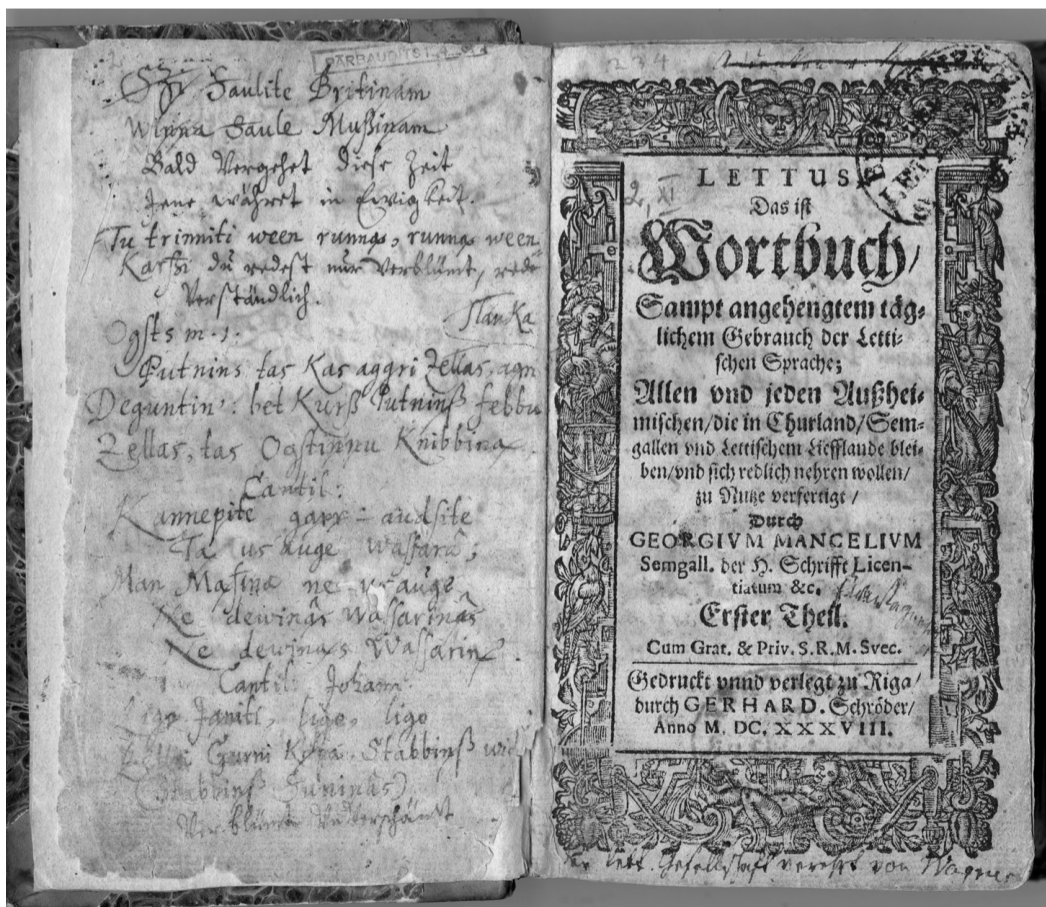 PĀRBAUDĪTS
Saulite Britinam
Winna Saule Mußinam
Bald Vergehet diese Zeit
Jene währet in Ewigkeit.
Tu trinniti ween runnas, runnas ween
Karßi du redest nur Verblümt, rede
Verständlich.
SlanKa
Ogsts m. 1.
Putnins tas Kas aggri Zellas, agri
Deguntin': bet Kurß Putninß
Zellas, tas Ogstinnu Knibbina.
Cantil:
Kannepite garr - audsite
us auge wassara;
Man Masina ne us auge
Ne dewinâs Wassarinâs
Ne dewinas
Cantil: Johann:
Ligo Janiti, ligo, ligo
Stabbinß
Verblümt
234
2, XI
LETTUS,
Das ist
Wortbuch/
Sampt angehengtem täg-
lichem Gebrauch der Letti-
schen Sprache;
Allen vnd jeden Außhei-
mischen/die in Churland/Sem-
gallen vnd Lettischem Liefflande blei-
ben/vnd sich redlich nehren wollen/
zu Nutze verfertigt/
Durch
GEORGIVM MANCELIVM
Semgall. der H. Schrifft Licen-
tiatum &c.
Erster Theil.
Cum Grat. & Priv. S.R.M. Svec.
Gedruckt vnnd verlegt zu Riga/
durch GERHARD. Schröder/
Anno M. DC. XXXVIII.
lett. Gesellschaft verehrt von Wagner